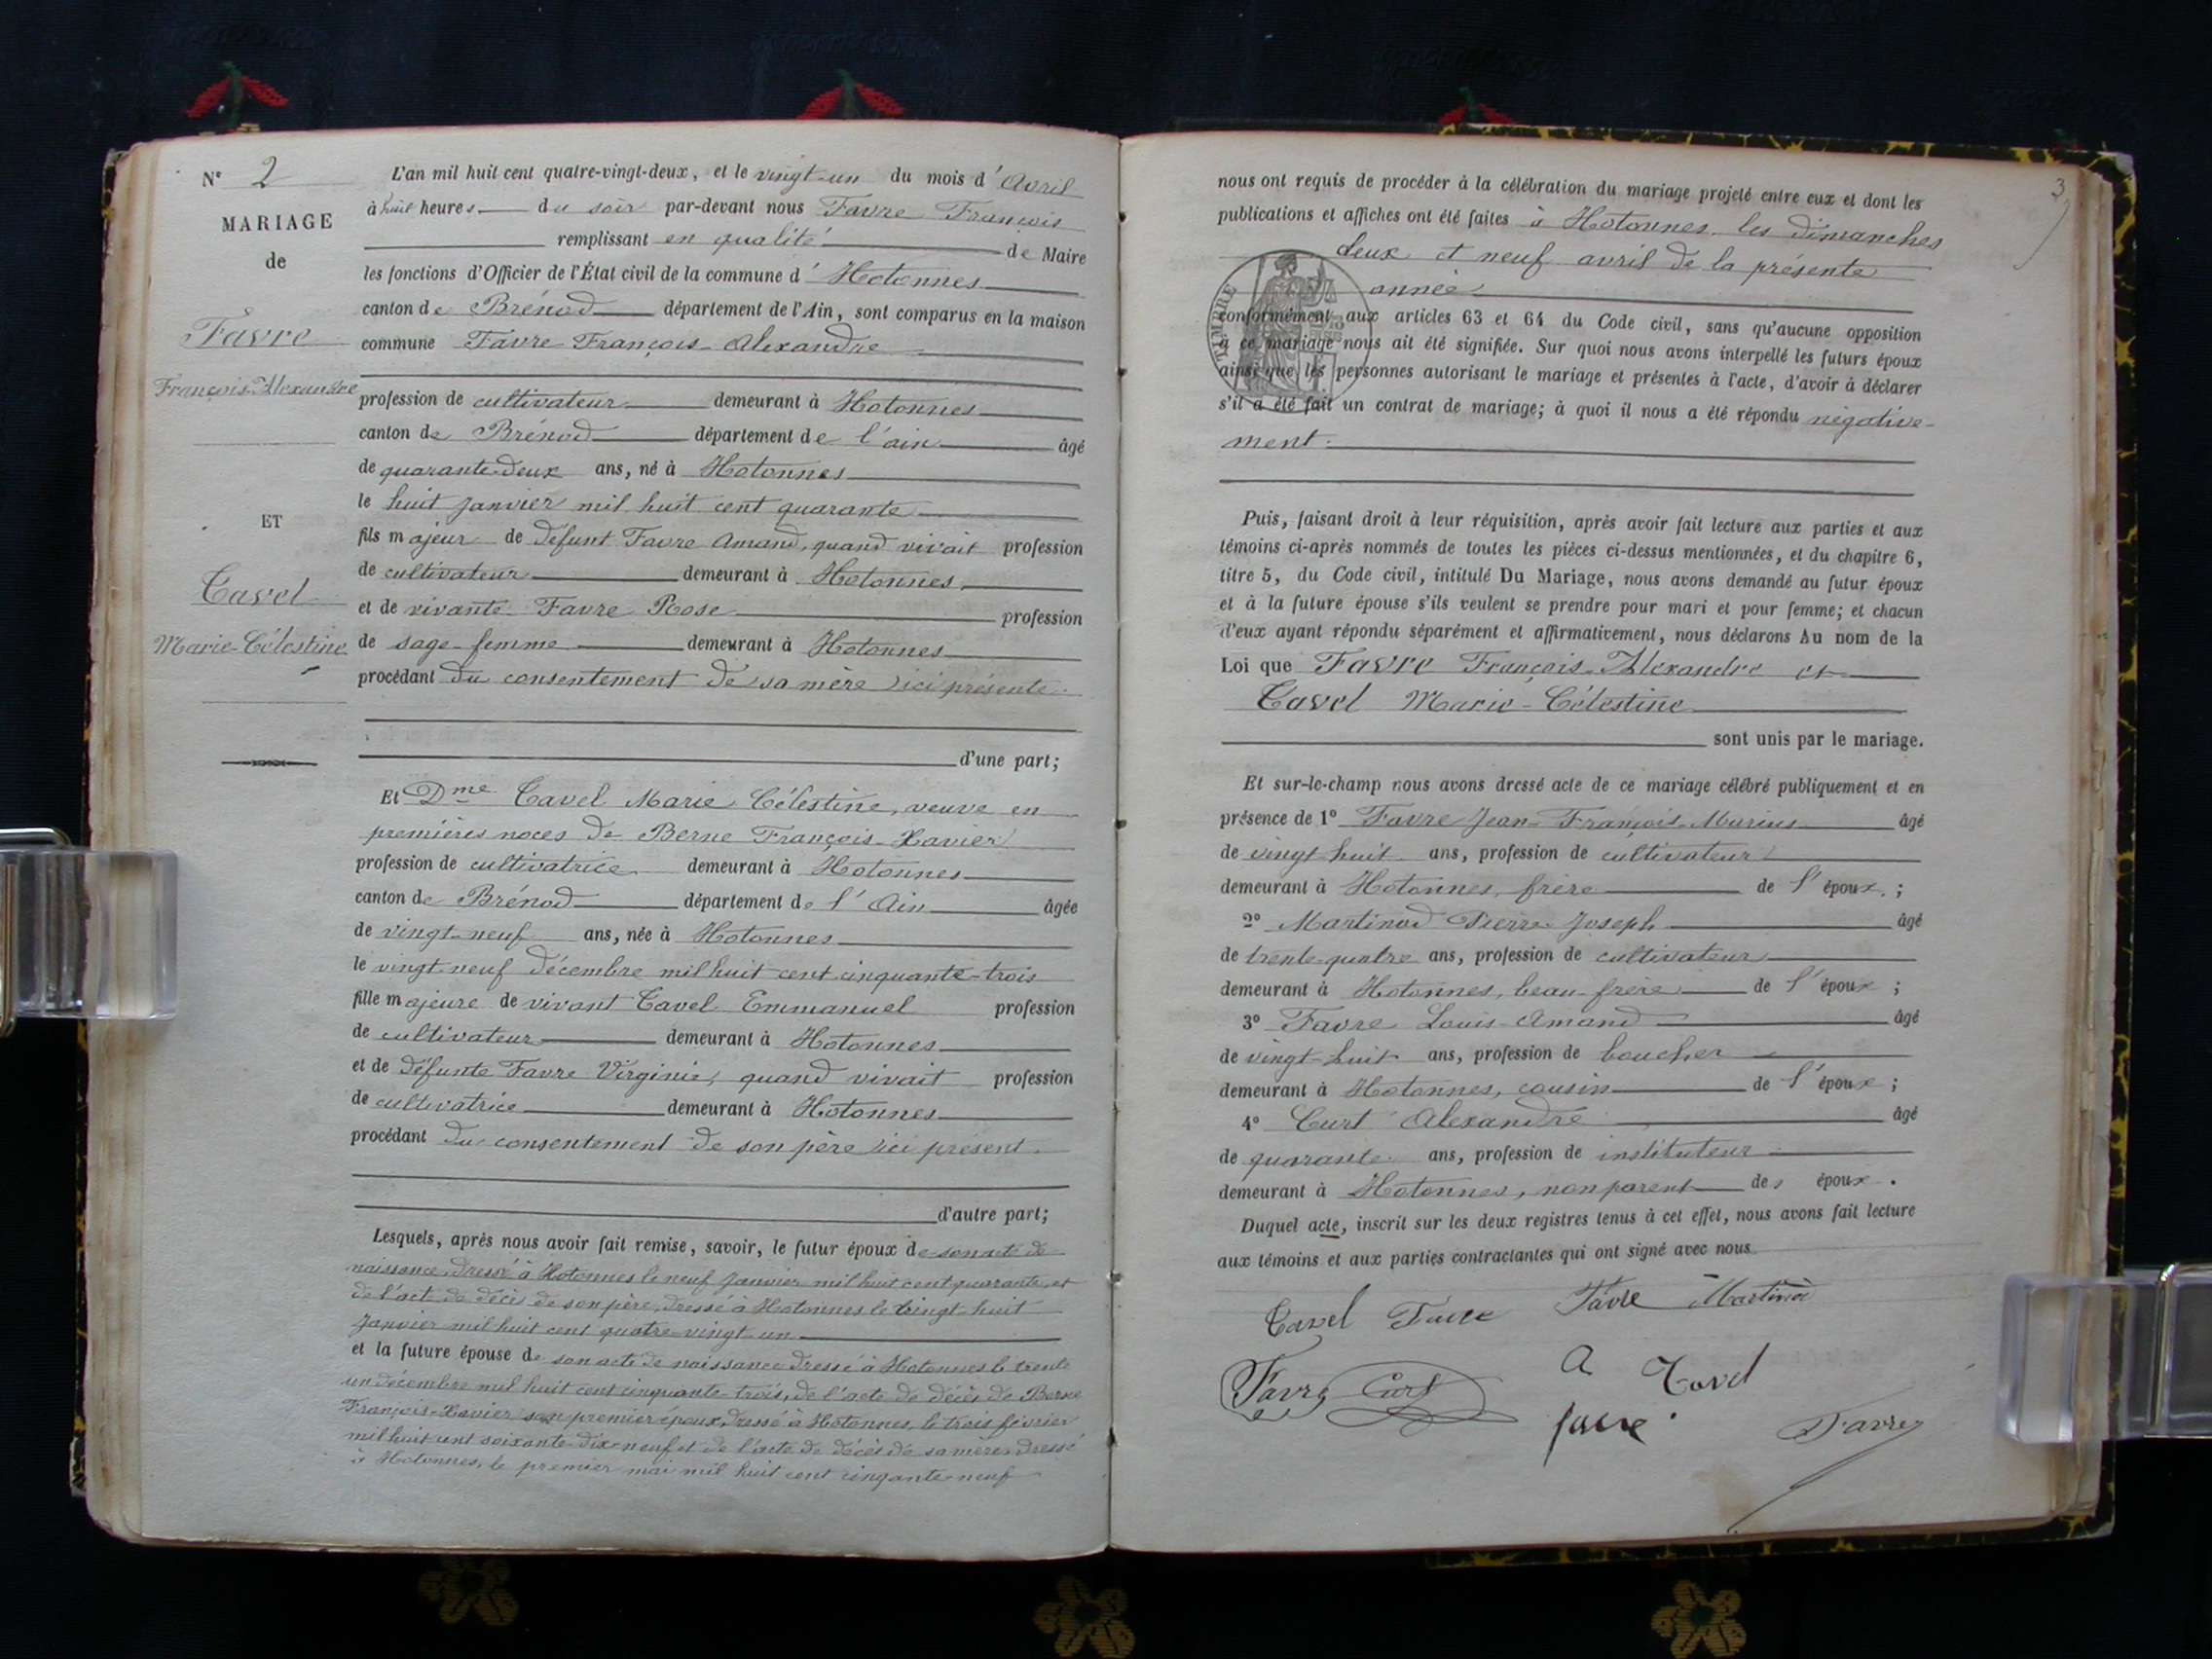 N° 2
MARIAGE
de
Favre
François-Alexandre
ET
Tavel
Marie-Célestine
L'an mil huit cent quatre-vingt-deux, et le vingt-un du mois d'Avril
à huit heures du soir par-devant nous Favre François
remplissant en qualité de Maire
les fonctions d'Officier de l'État civil de la commune d'Hotonnes
canton de Brénod département de l'Ain, sont comparus en la maison
commune Favre François Alexandre
profession de cultivateur demeurant à Hotonnes
canton de Brénod département de l'ain âgé
de quarante-deux ans, né à Hotonnes
le huit janvier mil huit cent quarante
fils majeur de défunt Favre Amand, quand vivait profession
de cultivateur demeurant à Hotonnes,
et de vivante Favre Rose profession
de sage-femme demeurant à Hotonnes
procédant du consentement de sa mère ici présente.
d'une part;
Et Dme Tavel Marie Célestine, veuve en
premières noces de Berne François-Xavier
profession de cultivatrice demeurant à Hotonnes
canton de Brénod département de l'Ain âgée
de vingt-neuf ans, née à Hotonnes
le vingt-neuf décembre mil huit cent cinquante-trois
fille majeure de vivant Tavel Emmanuel profession
de cultivateur demeurant à Hotonnes
et de défunte Favre Virginie, quand vivait profession
de cultivatrice demeurant à Hotonnes
procédant du consentement de son père ici présent.
d'autre part;
Lesquels, après nous avoir fait remise, savoir, le futur époux de son acte de
naissance dressé à Hotonnes le neuf Janvier mil huit cent quarante, et
de l'acte de décès de son père, dressé à Hotonnes le vingt-huit
Janvier mil huit cent quatre-vingt-un
et la future épouse de son acte de naissance dressé à Hotonnes le trente
un décembre mil huit cent cinquante-trois, de l'acte de décès de Berne
François-Xavier son premier époux, dressé à Hotonnes, le trois février
mil huit cent soixante-dix-neuf et de l'acte de décès de sa mère, dressé
à Hotonnes, le premier mai mil huit cent cinqante-neuf
3
nous ont requis de procéder à la célébration du mariage projeté entre eux et dont les
publications et affiches ont été faites à Hotonnes les dimanches
deux et neuf avril de la présente
année
TIMBRE
conformément aux articles 63 et 64 du Code civil, sans qu'aucune opposition
à ce mariage nous ait été signifiée. Sur quoi nous avons interpellé les futurs époux
ainsi que les personnes autorisant le mariage et présentes à l'acte, d'avoir à déclarer
s'il a été fait un contrat de mariage; à quoi il nous a été répondu négative-
ment.
Puis, faisant droit à leur réquisition, après avoir fait lecture aux parties et aux
témoins ci-après nommés de toutes les pièces ci-dessus mentionnées, et du chapitre 6,
titre 5, du Code civil, intitulé Du Mariage, nous avons demandé au futur époux
et à la future épouse s'ils veulent se prendre pour mari et pour femme; et chacun
d'eux ayant répondu séparément et affirmativement, nous déclarons Au nom de la
Loi que Favre François-Alexandre et
Tavel Marie-Célestine
sont unis par le mariage.
Et sur-le-champ nous avons dressé acte de ce mariage célébré publiquement et en
présence de 1° Favre Jean-François-Marius âgé
de vingt-huit ans, profession de cultivateur
demeurant à Hotonnes, frère de l'époux ;
2° Martinod Pierre Joseph âgé
de trente-quatre ans, profession de cultivateur
demeurant à Hotonnes, beau-frère de l'époux ;
3° Favre Louis Amand âgé
de vingt-huit ans, profession de boucher
demeurant à Hotonnes, cousin de l'époux ;
4° Curt Alexandre âgé
de quarante ans, profession de instituteur
demeurant à Hotonnes, non parent des époux.
Duquel acte, inscrit sur les deux registres tenus à cet effet, nous avons fait lecture
aux témoins et aux parties contractantes qui ont signé avec nous
Tavel Favre Favre Martinod
Favre Curt A Tavel
favre Favre